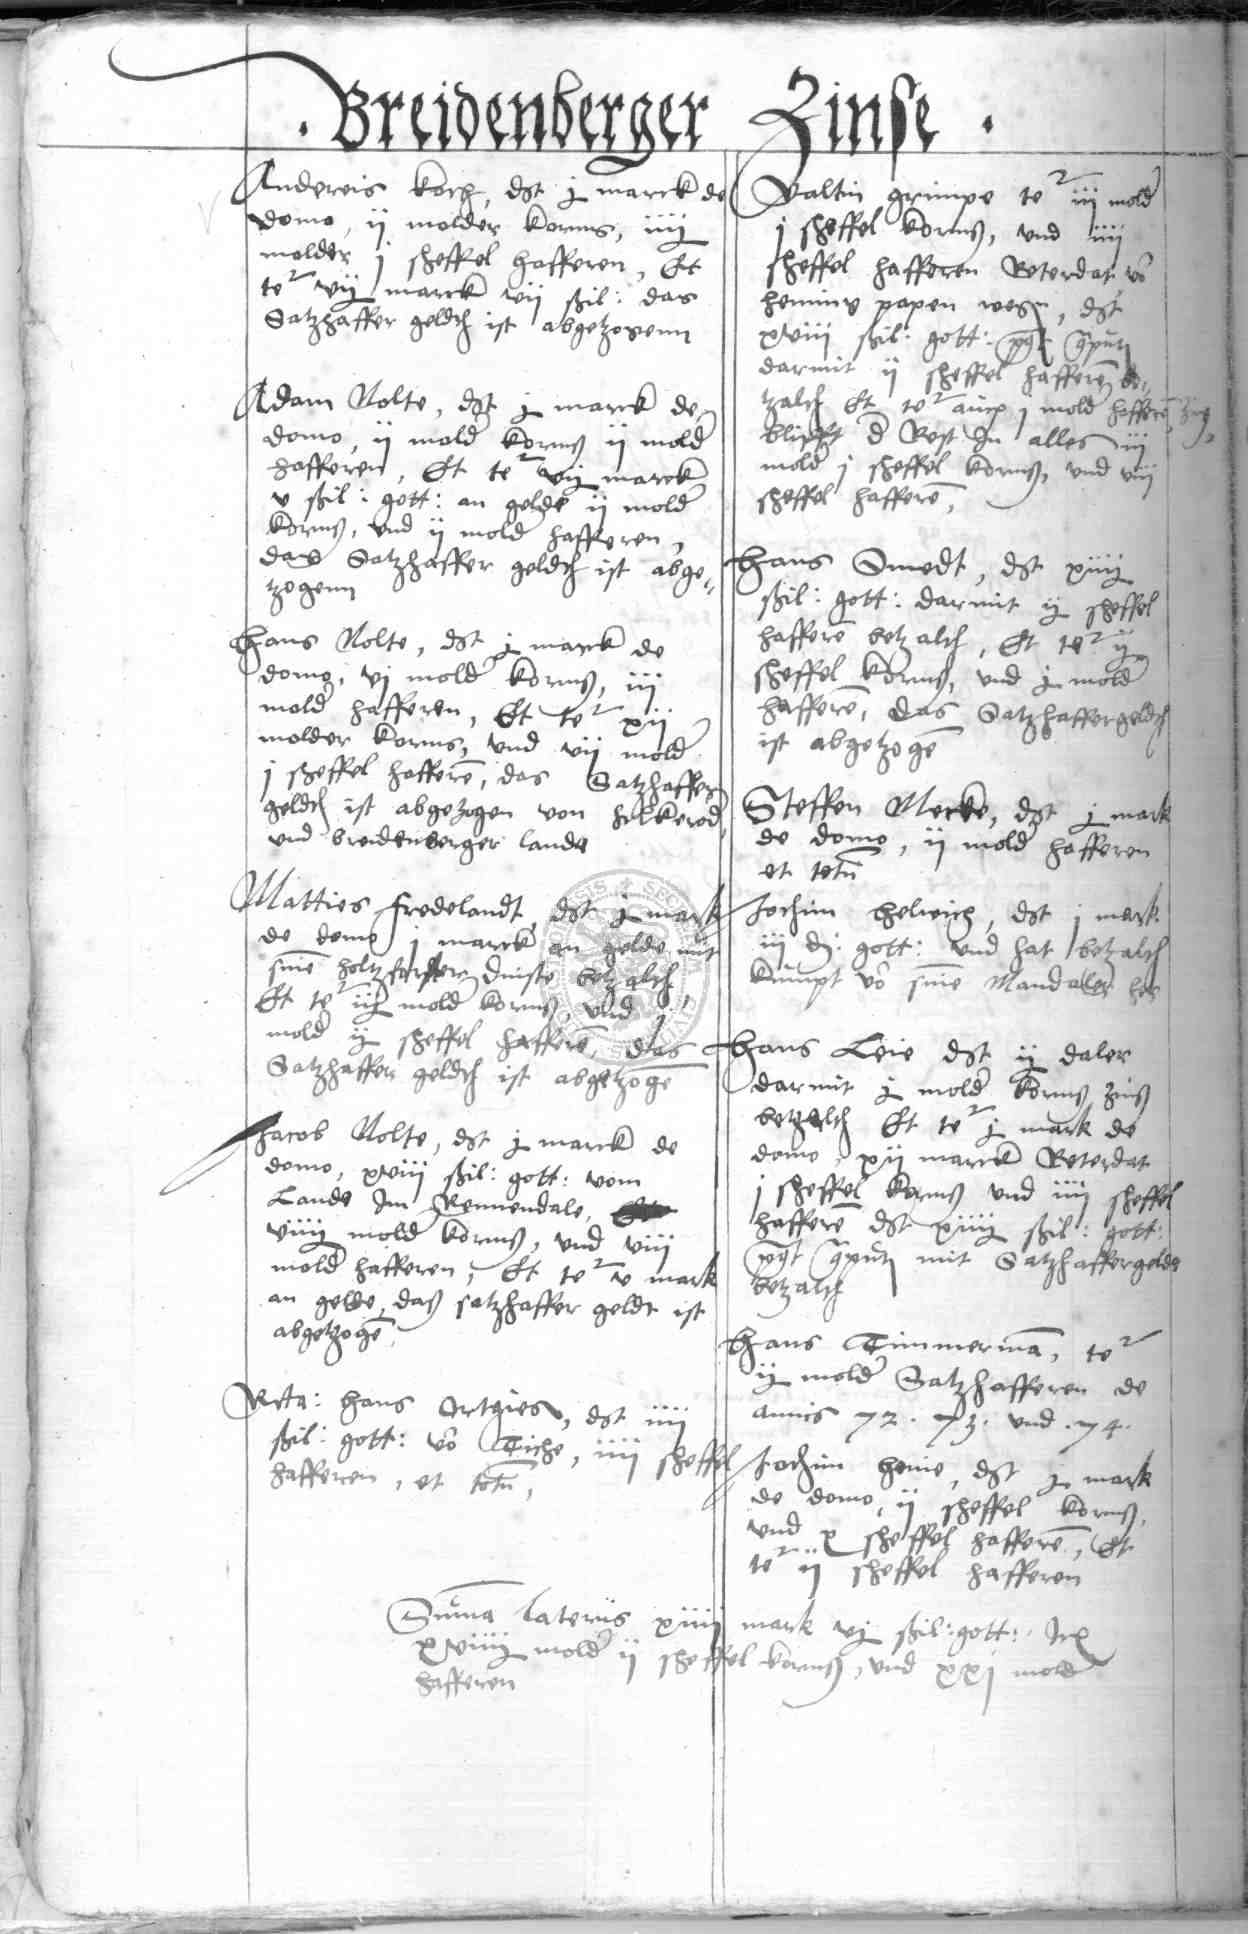 . Breidenberger Zinse .
Andereis Koch, dst j marck de
domo, ij molder korns, iiij
molder j sheffel hafferen, Et
te2 vij marck vij ßil: das
Satzhaffer geldt ist abgetzogenn
Adam Nolte, dst j marck de
domo, ij mold korns ij mold
hafferen, Et te2 vij marck
v ßil: gott: an gelde ij mold
korns, vnd ij mold hafferen,
das Satzhaffer geldt ist abge-
tzogenn
Hans Nolte, dst j marck de
domo, vj mold korns, iij
mold hafferen, Et te2 xij
molder korns, vnd vij mold
j sheffel hafferē, das Satzhaffer
geldt ist abgezogen von
vnd breidenberger lande
Matties Fredelandt, dst j mark
de domo j marck an gelde mit
sinē holtzforster dinste betzalt,
Et te2 iij mold korns, vnd j
mold ij sheffel hafferē, das
Satzhaffer geldt ist abgetzogē
Jacob Nolte, dst j marck de
domo, xviij ßil: gott: vom
Lande Im Rennendale,
viiij mold korns, vnd viij
mold hafferen, Et te2 v mark
an gelde, daß satzhaffer geldt ist
abgetzogē
Rcta: Hans Ortgies, dst iiij
ßil: gott: vō Tiche, iiij sheffel
hafferen, et totū,
Valtin Grimpe te2 iij mold
j sheffel korns, vnd iiij
sheffel hafferen Reterdat vō
Henning papen wegen, dst
xviij ßil: gott:
darmit ij sheffel hafferē be-
tzalt Et te2 auch j mold hafferē Zins,
blifft d Rest In alles iij
mold j sheffel korns, vnd viij
sheffel hafferē,
Hans Smedt, dst xiiij
ßil: gott: darmit ij sheffel
hafferē betzalt, Et te2 ij
sheffel korns, vnd j mold
hafferē, das Satzhaffergeldt
ist abgetzogē
Steffen Mecke, dst j mark
de domo, ij mold hafferen
et totū
Jochim Helwich, dst j mark
iij d: gott: vnd hat betzalt
kumpt vō sinē Mandaler her
Hans Leie dst ij daler
darmit j mold korns zins
betzalt Et te2 j mark de
domo, xij marck Reterdat
j sheffel korns vnd iiij sheffel
hafferē dst xiiij ßil: gott:
mit Satzhaffergelde
betzalt
Hans Timmermā, te2
ij mold Satzhafferen de
annis 72. 73. vnd .74.
Jochim Heine, dst j mark
de domo, ij sheffel korns,
vnd x sheffel hafferē, Et
te2 ij sheffel hafferen
Sūma lateris xiiij mark vj ßil: gott:
xviiij mold ij sheffel korns, vnd xxj mold
hafferen